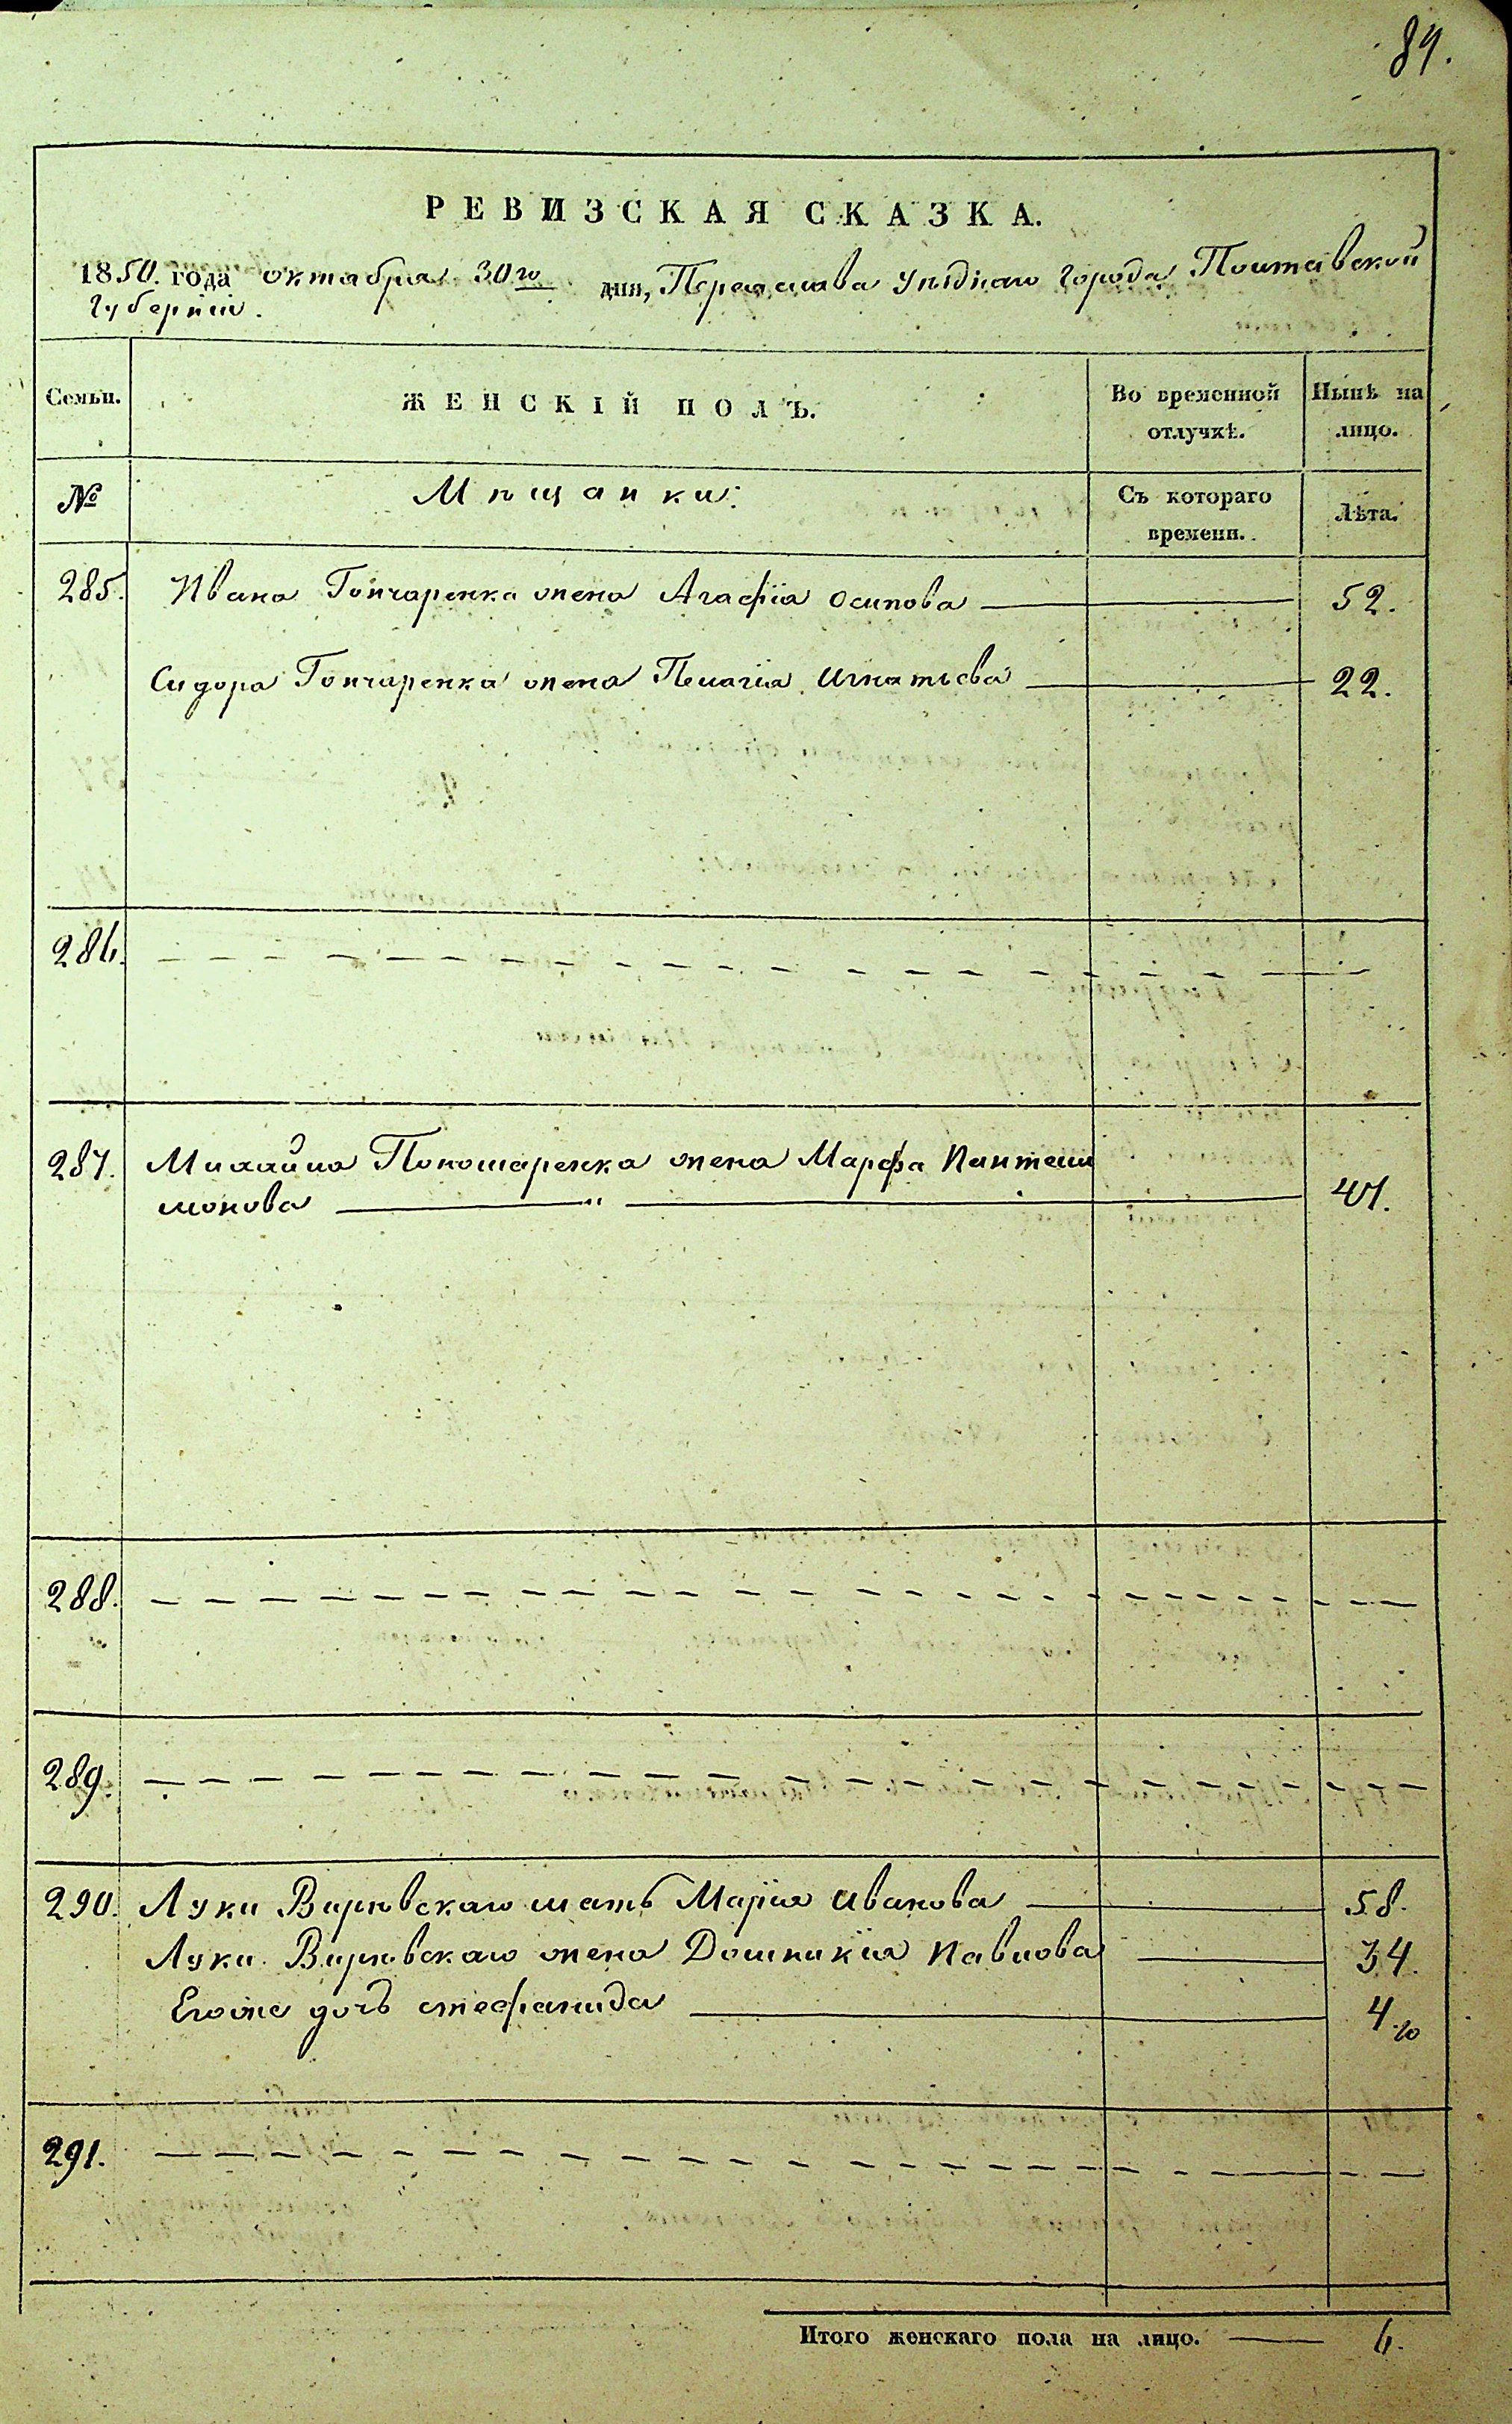 89.
РЕВИЗСКАЯ СКАЗКА.
1850. года октабря 30го дня, Переяслава уѣзднаго города Полтавской
губерніи.
Семьи. ЖЕНСКІЙ ПОЛЪ. Во временной отлучкѣ. Нынѣ на лицо.
№ Мѣщанки: Съ котораго времени. Лѣта.
285. Ивана Гончаренка жена Агафія Осипова 52.
Сидора Гончаренка жена Пелагія Игнатьева 22.
286.
287. Михайла Пономаренка жена Марфа Пантели
монова 47.
288.
289.
290. Луки мать Марія Иванова 58.
Луки жена Домникія Павлова 34.
Егоже дочь Стефанида 4
291.
Итого женскаго пола на лицо. 6.